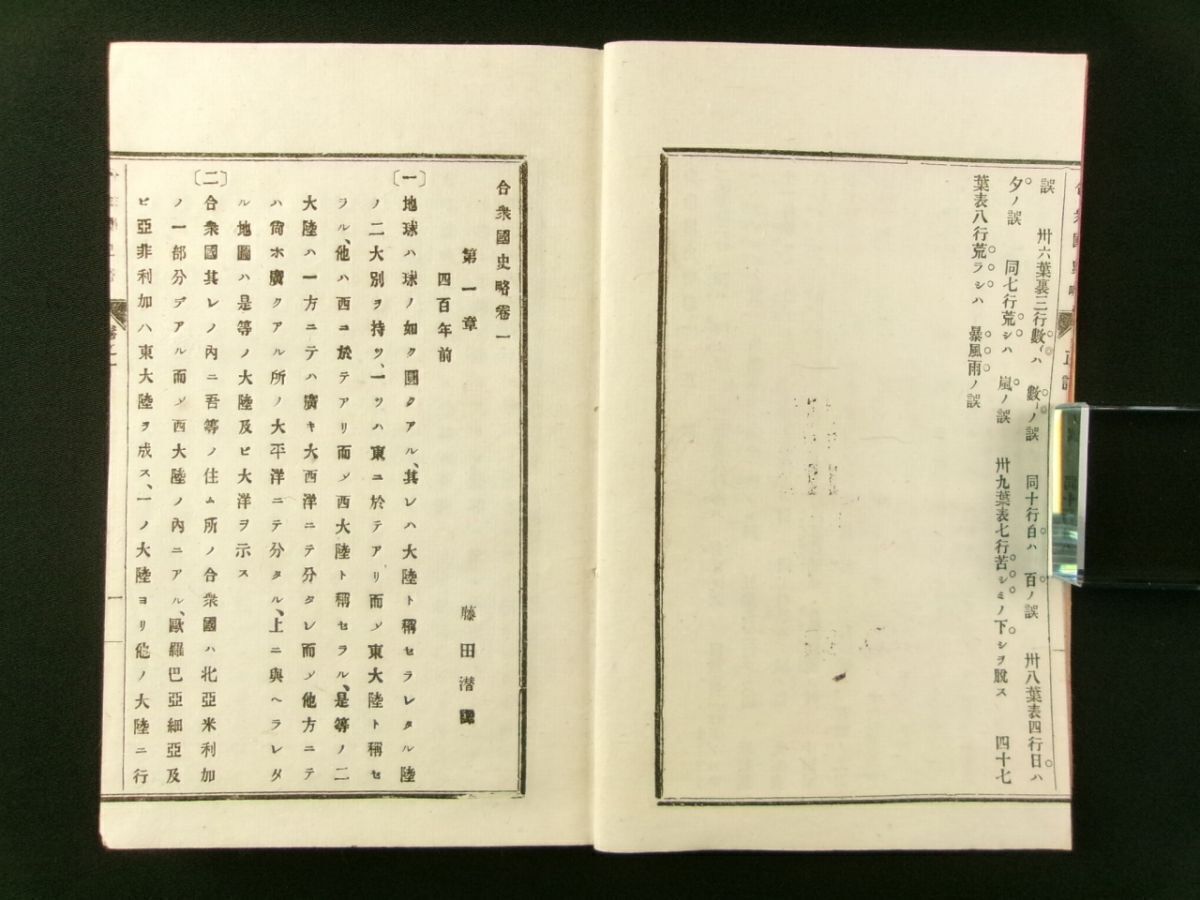 誤　卅六葉裏三行數〻ハ　數〻ノ誤　同十行自ハ　百ノ誤　卅八葉表四行日ハ
夕ノ誤　同七行荒シハ　嵐ノ誤　卅九葉表七行苦シミノ下シヲ脫ス　四十七
葉表八行荒ラシハ　暴風雨ノ誤
合衆國史略卷一
第一章　藤田潜譯
四百年前
〔一〕地球ハ球ノ如ク圓クアル、其レハ大陸ト稱セラレタル陸
ノ二大別ヲ持ツ、一ツハ東ニ於テアリ而〆東大陸ト稱セ
ラル、他ハ西ニ於テアリ而〆西大陸ト稱セラル、是等ノ二
大陸ハ一方ニテハ廣キ大西洋ニテ分タレ而〆他方ニテ
ハ尙ホ廣クアル所ノ大平洋ニテ分タル、上ニ與ヘラレタ
ル地圖ハ是等ノ大陸及ビ大洋ヲ示ス
〔二〕合衆國其レノ內ニ吾等ノ住ム所ノ合衆國ハ北亞米利加
ノ一部分デアル而〆西大陸ノ內ニアル、歐羅巴亞細亞及
ビ亞非利加ハ東大陸ヲ成ス、一ノ大陸ヨリ他ノ大陸ニ行